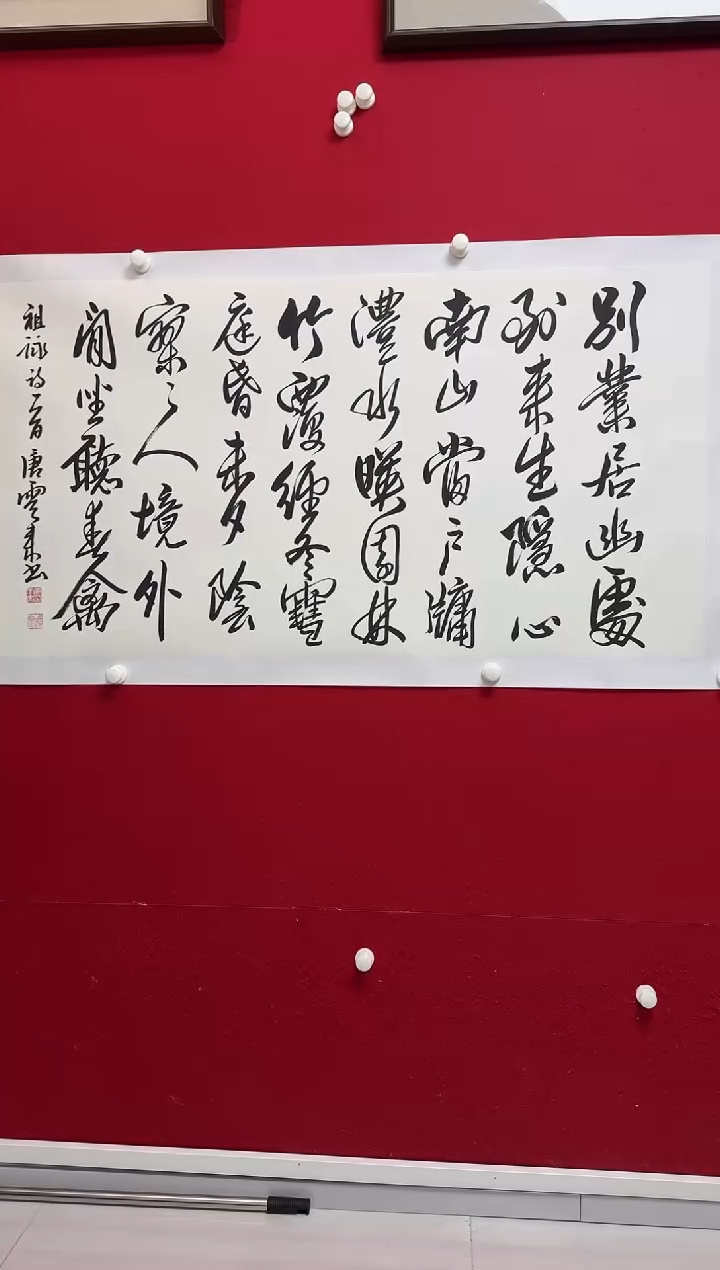 別業居幽處
到來生隱心
南山當戶牖
灃水映園林
竹覆經冬雪
庭昏未夕陰
寥寥人境外
閑坐聽春禽
祖詠詩一首 唐雲來書